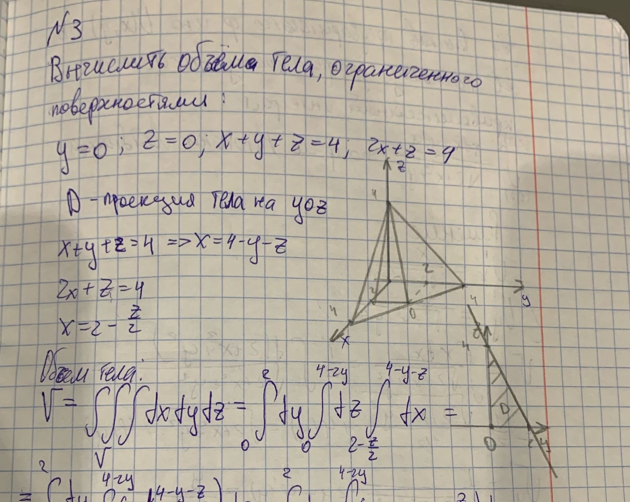 N3
Вычислить объёма тела, ограниченного
поверхностями:
y=0; z=0; x+y+z=4, 2x+z=4
z
4
D - проекция тела на yoz
x+y+z=4 => x=4-y-z
2
4
y
2x+z=4
x=2-z/2
4
x
Объем тела:
4
V = ∭_V dxdydz = ∫_0^2 dy ∫_0^{4-2y} dz ∫_{2-z/2}^{4-y-z} dx =
D
0
2